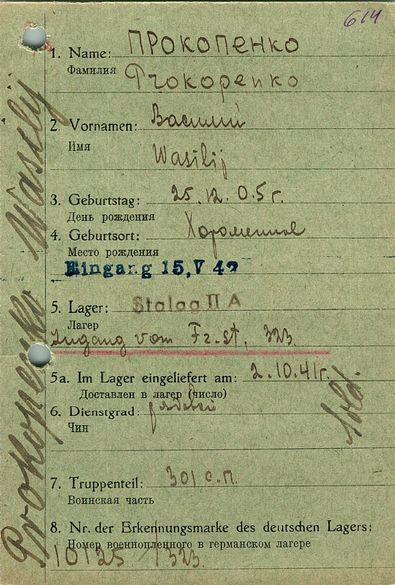 614
1. Name: ПРОКОПЕНКО
Фамилия Prokopenko
2. Vornamen: Василий
Имя Wasilij
3. Geburtstag: 25.12.05г.
День рождения
4. Geburtsort:
Место рождения
Eingang 15. V 42
5. Lager: Stalag II A
Лагер
Zugang vom Fr-St. 323.
5a. Im Lager eingeliefert am: 2.10.41г.
Доставлен в лагер (число)
6. Dienstgrad: рядовой
Чин
Sold.
7. Truppenteil: 301 с.п.
Воинская часть
8. Nr. der Erkennungsmarke des deutschen Lagers:
Номер военнопленного в германском лагере
10125 / 323.
Prokopenko Wasilij